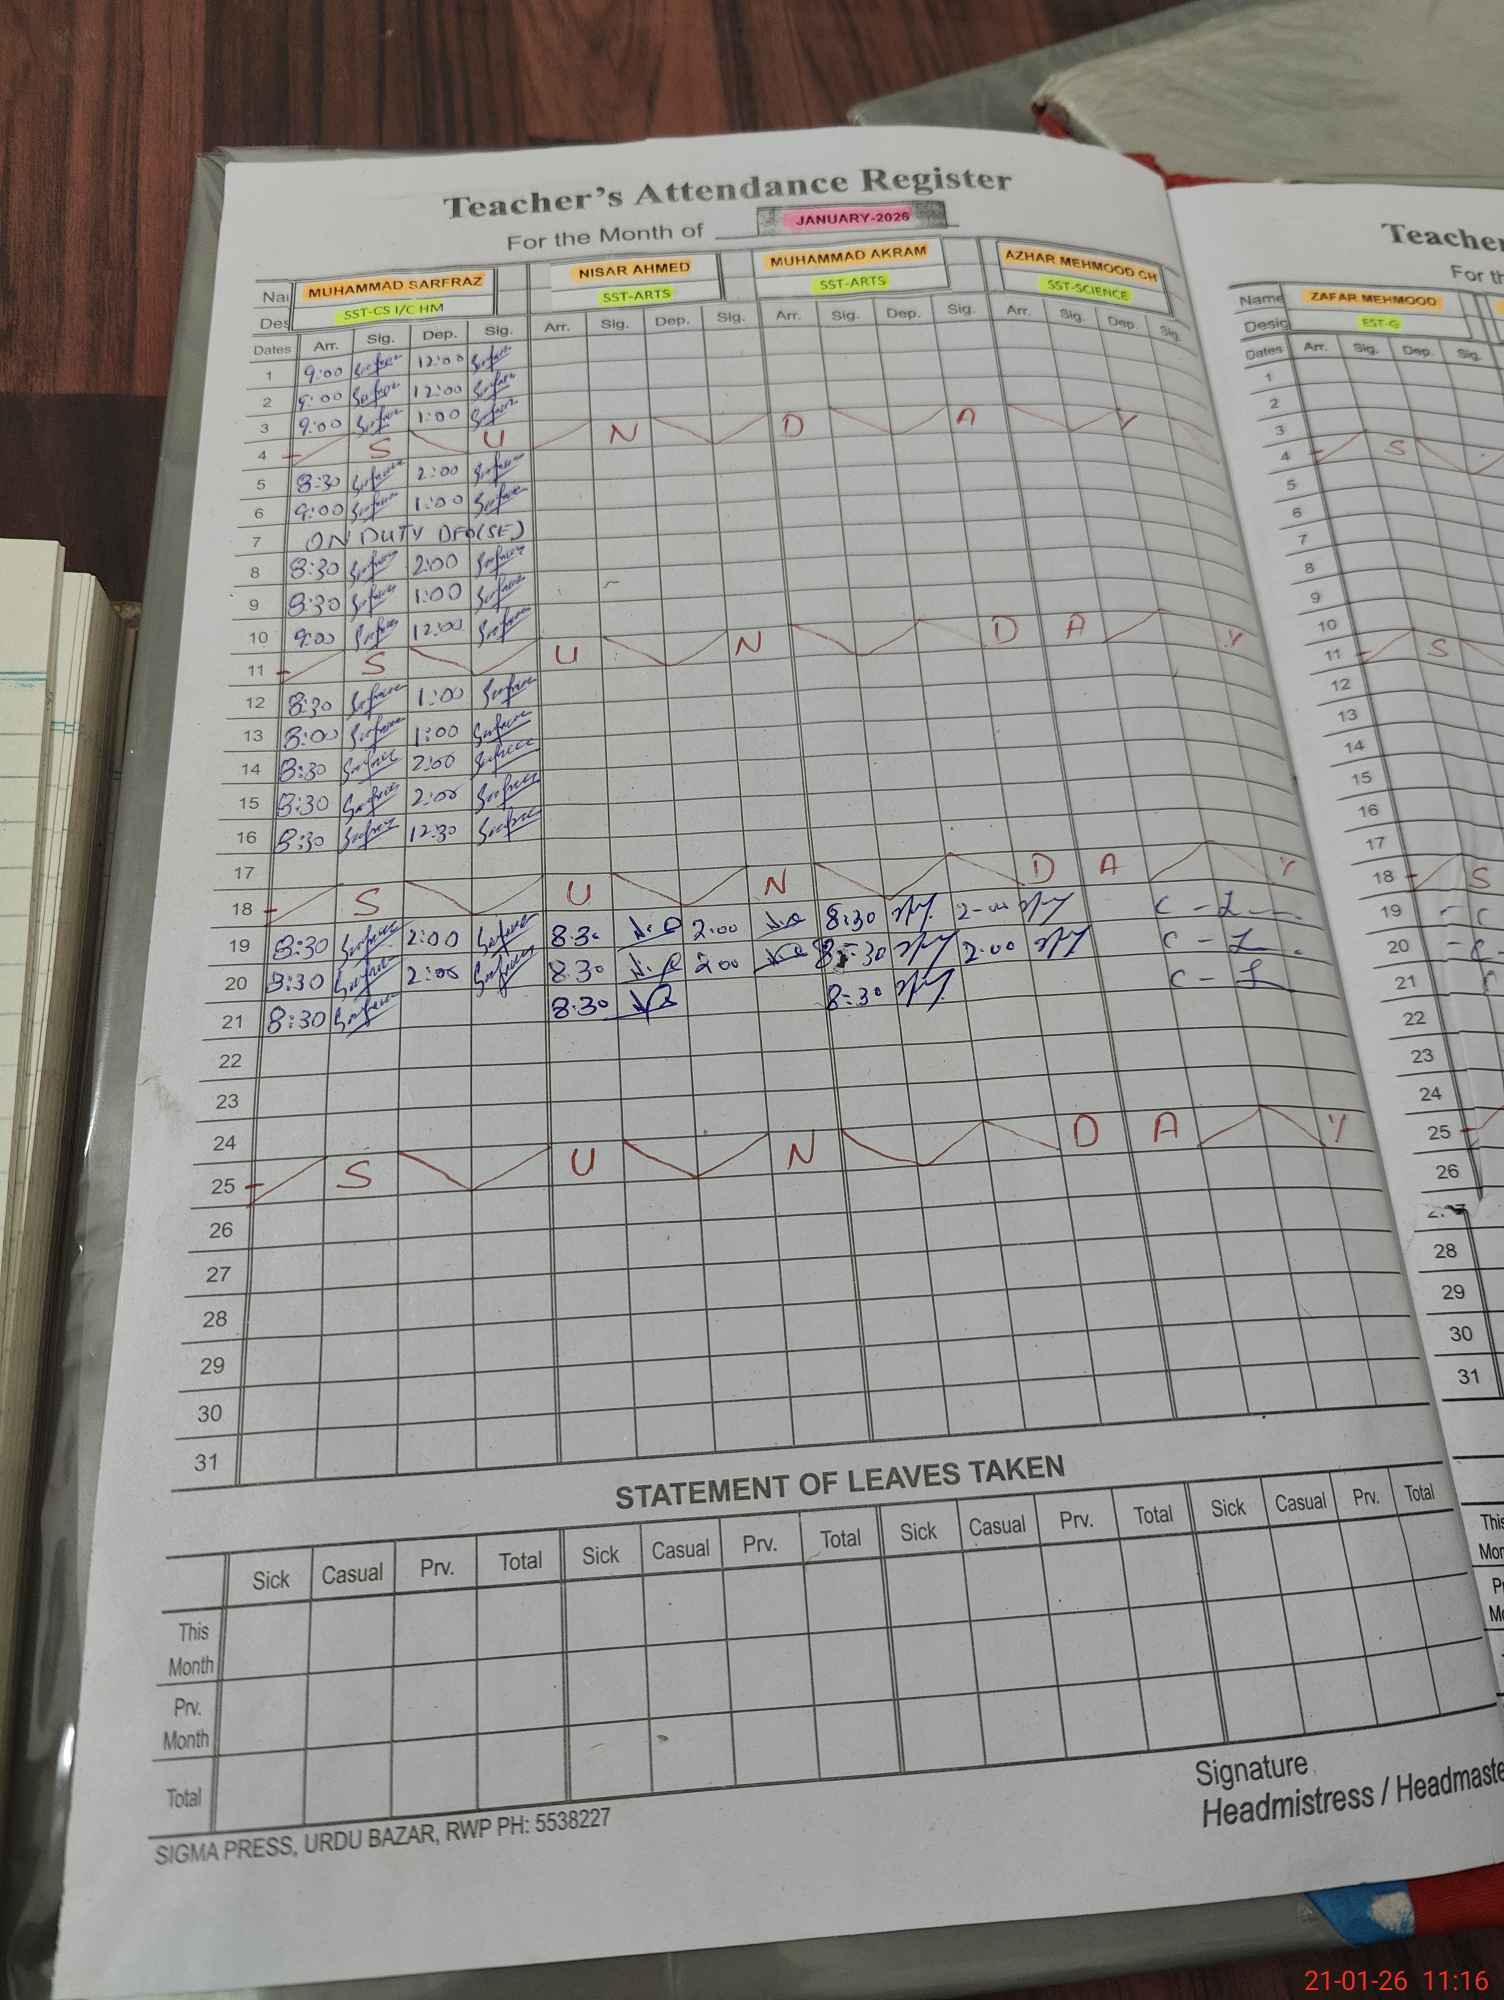 Teacher's Attendance Register
For the Month of JANUARY-2026
Nai MUHAMMAD SARFRAZ NISAR AHMED MUHAMMAD AKRAM AZHAR MEHMOOD CH
Des SST-CS I/C HM SST-ARTS SST-ARTS SST-SCIENCE
Dates Arr. Sig. Dep. Sig. Arr. Sig. Dep. Sig. Arr. Sig. Dep. Sig. Arr. Sig. Dep. Sig.
1 9:00 12:00
2 9:00 12:00
3 9:00 1:00
4 S U N D A Y
5 8:30 2:00
6 9:00 1:00
7 ON DUTY DEO(SE)
8 8:30 2:00
9 8:30 1:00
10 9:00 12:00
11 S U N D A Y
12 8:30 1:00
13 8:00 1:00
14 8:30 2:00
15 8:30 2:00
16 8:30 12:30
17
18 S U N D A Y
19 8:30 2:00 8:30 2:00 8:30 C-L
20 8:30 2:00 8:30 200 8:30 2:00 C-L
21 8:30 8:30 8:30 C-L
22
23
24
25 S U N D A Y
26
27
28
29
30
31
STATEMENT OF LEAVES TAKEN
Sick Casual Prv. Total Sick Casual Prv. Total Sick Casual Prv. Total Sick Casual Prv. Total
This Month
Prv. Month
Total
SIGMA PRESS, URDU BAZAR, RWP PH: 5538227
Signature
Headmistress / Headmaste
Teacher
For th
Name ZAFAR MEHMOOD
Desig EST-G
Dates Arr. Sig. Dep. Sig.
1
2
3
4 S
5
6
7
8
9
10
11 S
12
13
14
15
16
17
18 S
19 - C
20 - C
21 C
22
23
24
25
26
27
28
29
30
31
This
Mon
21-01-26 11:16